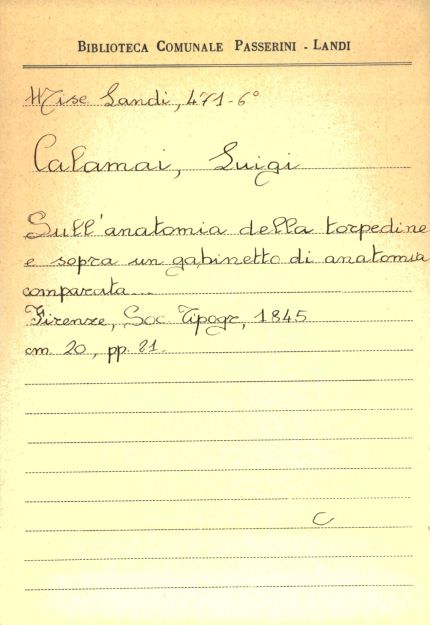 BIBLIOTECA COMUNALE PASSERINI - LANDI
Misc Landi, 471-6°
Calamai, Luigi
Sull'anatomia della torpedine
e sopra un gabinetto di anatomia
comparata...
Firenze, Soc Tipogr, 1845
cm. 20, pp. 21.
C